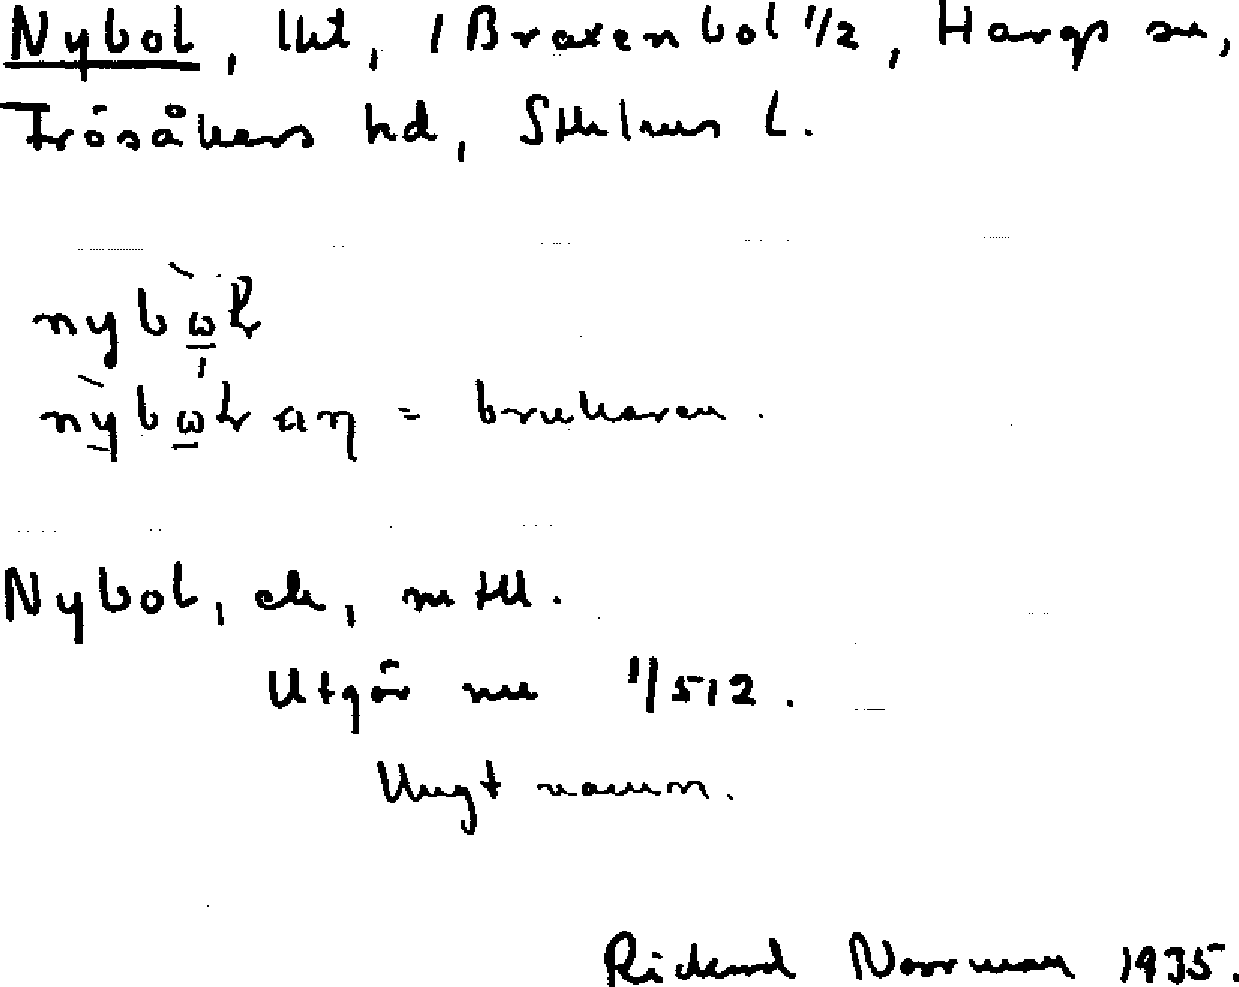 Nybol, lht, / Braxenbol 1/2, Hargs sn,
Frösåkers hd, Sthlms l.
nybὼ̲l
nỳbω̲lan = brukaren.
Nybol, , n Hll.
Utgör nu 1/512.
Ungt namn.
Rickard Norrman 1935.